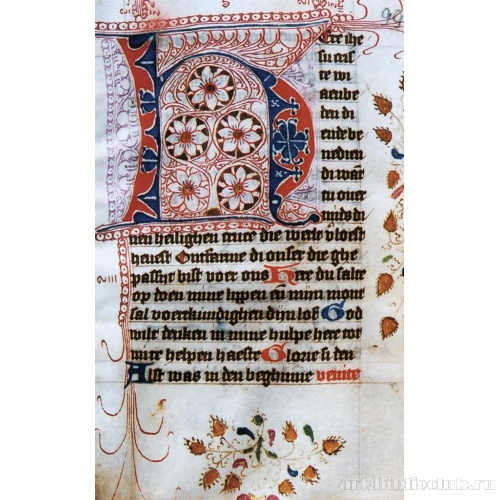 Ere ihe
su cris
te wi
aenbe
den di
ende be
nedien
di wāt
tu over
mids di
nen heilighen cruce die werlt vloest
heuest Ontfarme di onser die ghe
passiet bist voer ons Here du salte
op doen mine lippen eñ mijn mont
sal voerkundighen dijn lof God
wile denken in mine hulpe here tot
mi te helpen haeste Glorie si den
Alst was in den beghinne venite
art.biblioclub.ru